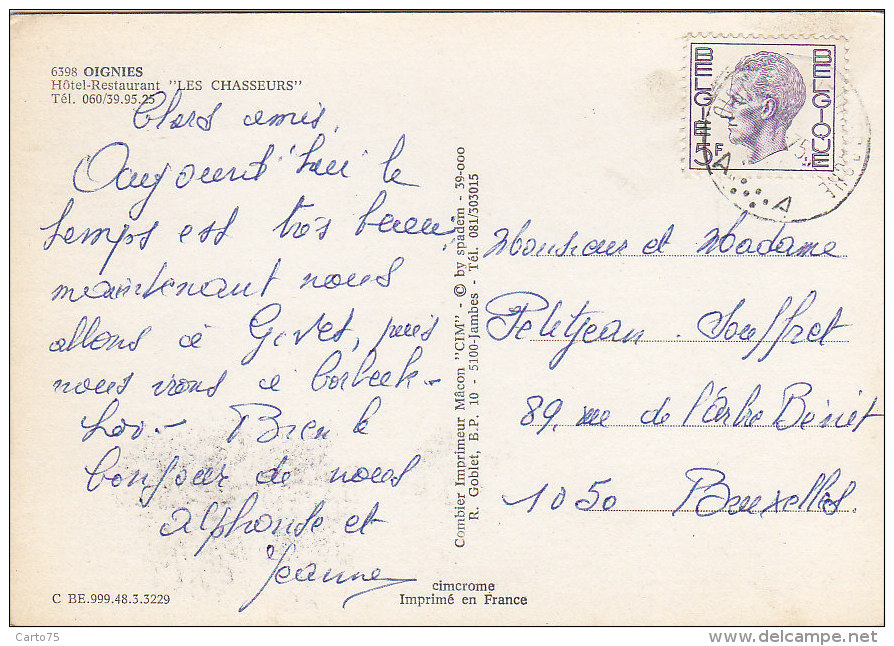 6398 OIGNIES
Hôtel-Restaurant "LES CHASSEURS"
Tél. 060/39.95.25
Chers amis,
Aujourd'hui le
temps est très beau
maintenant nous
allons à Givet, puis
nous irons à Corbeek-
Loo.- Bien le
bonjour de nous
Alphonse et
Jeanne
C BE.999.48.3.3229
Combier Imprimeur Mâcon "CIM" - © by spadem - 39-000
R. Goblet, B.P. 10 - 5100-Jambes - Tél. 081/303015
cimcrome
Imprimé en France
BELGIE
BELGIQUE
5F
A
A
Monsieur et Madame
Petitjean - Souffret
89, rue de l'Arbre Bénit
1050 Bruxelles.
Carto75
www.delcampe.net